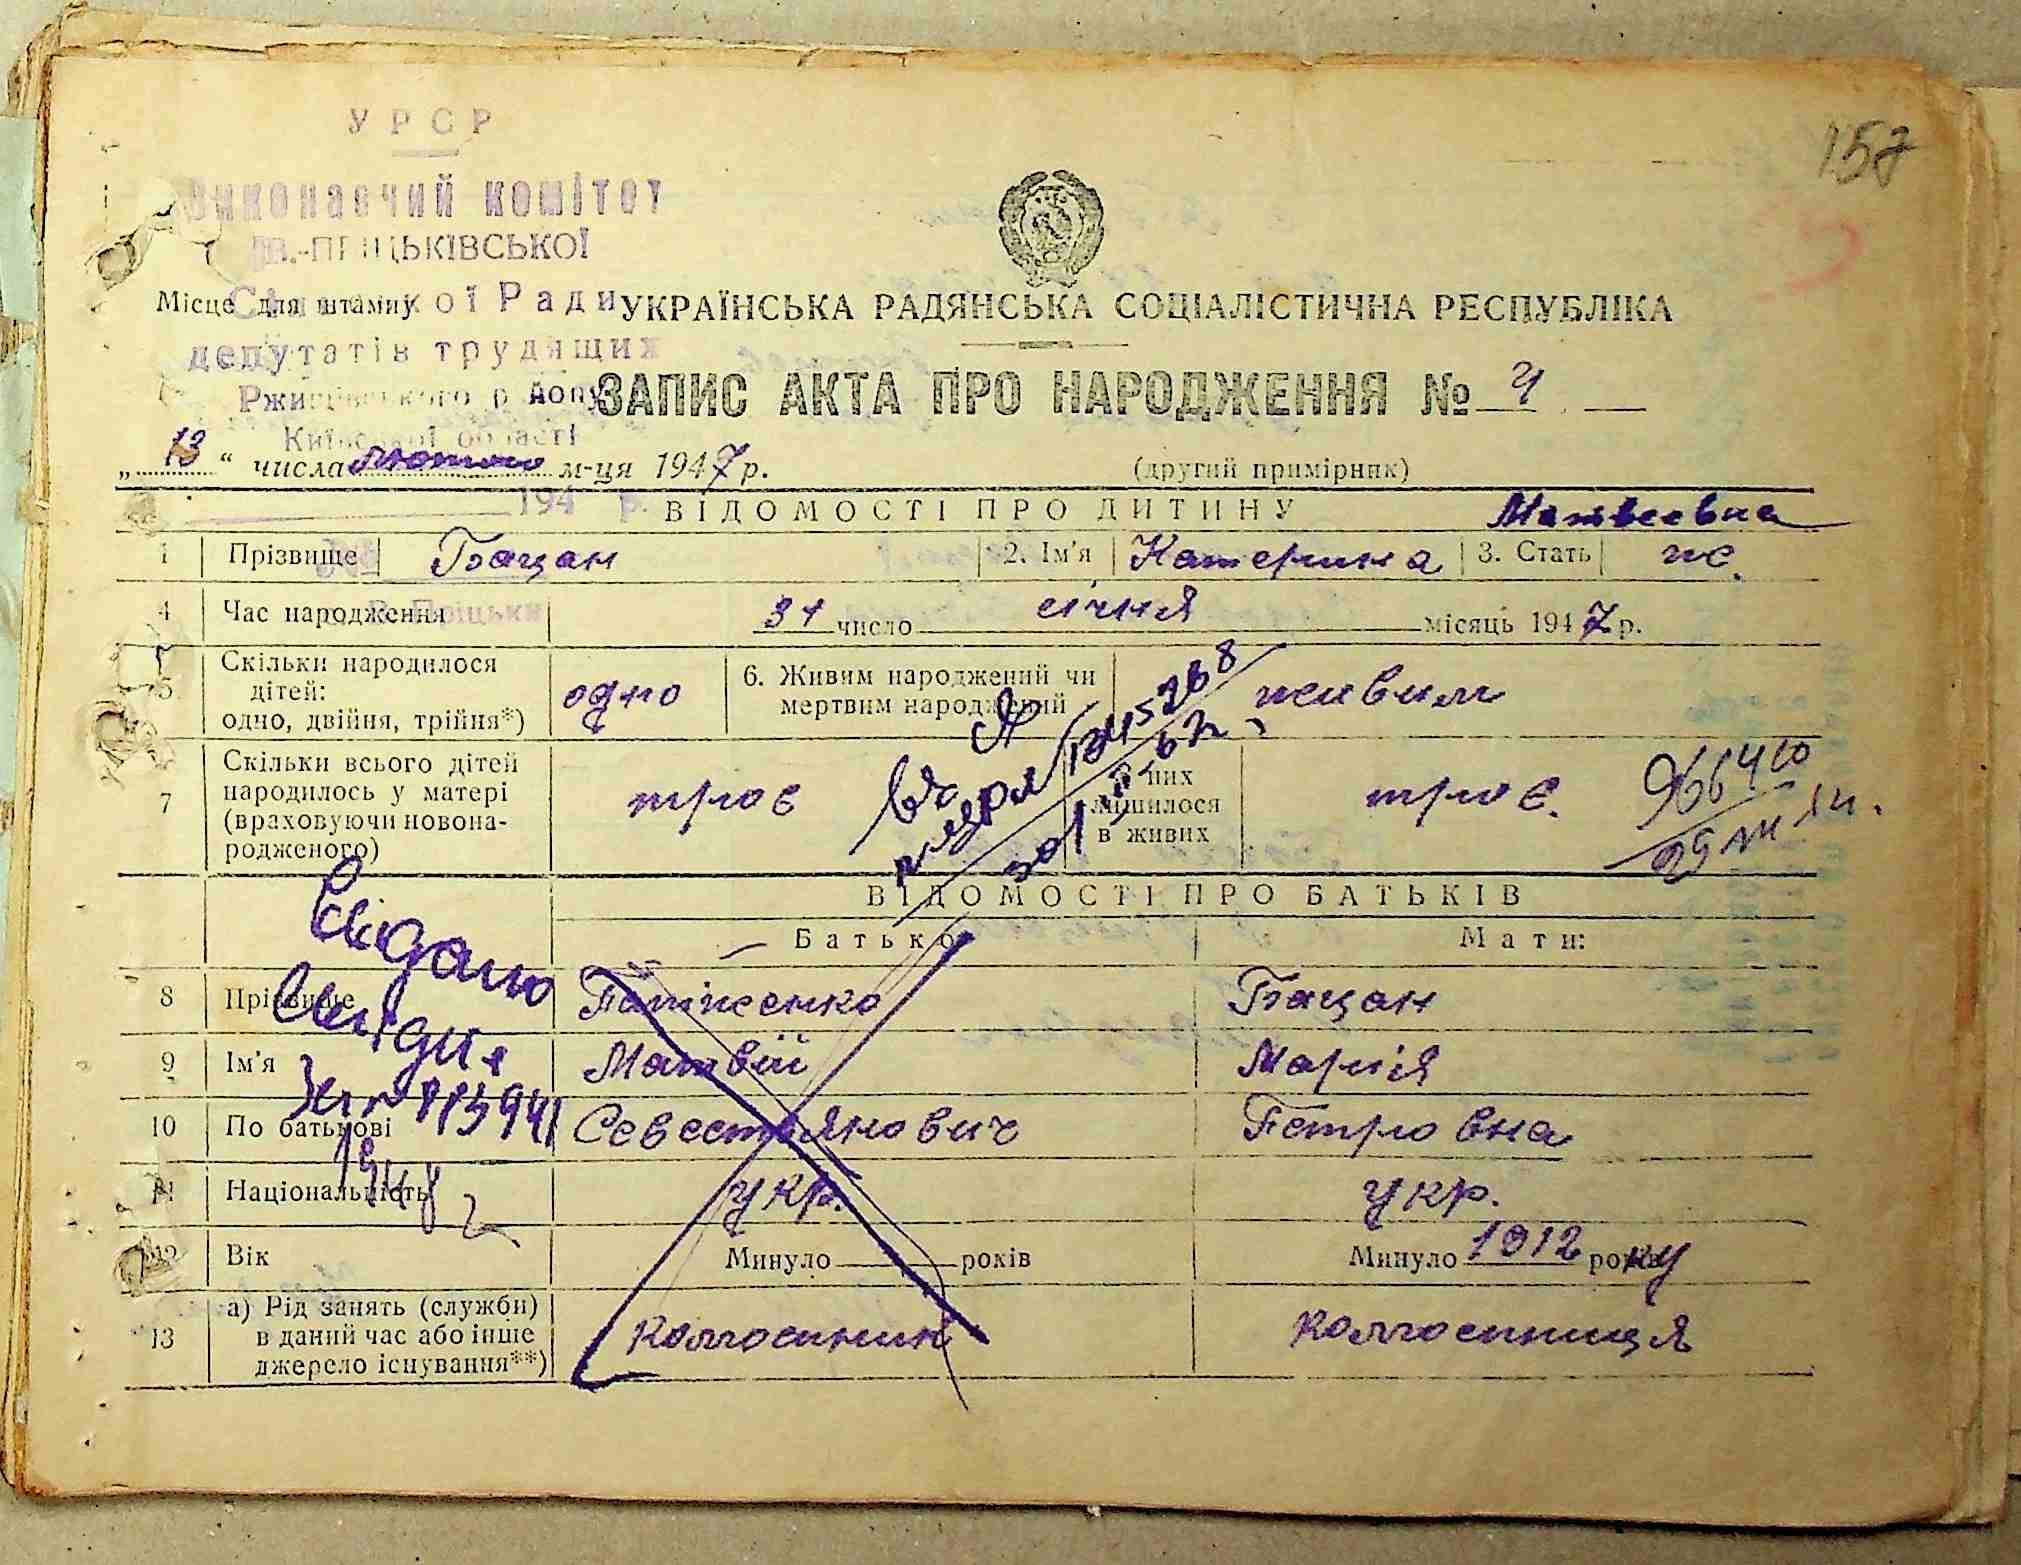 УРСР
157
Виконавчий комітет
В.-ПРИЦЬКІВСЬКОЇ
Місце для штампу
Сільської Ради
УКРАЇНСЬКА РАДЯНСЬКА СОЦІАЛІСТИЧНА РЕСПУБЛІКА
депутатів трудящих
Ржищівського району
ЗАПИС АКТА ПРО НАРОДЖЕННЯ № 4
Київської області
„13“ числа лютого м-ця 1947 р.
(другий примірник)
194 р.
ВІДОМОСТІ ПРО ДИТИНУ
Матвеевна
1 Прізвище Бацан 2. Ім'я Катерина 3. Стать ж.
4 Час народження 31 число січня місяць 1947 р.
5 Скільки народилося дітей: одно, двійня, трійня*) одно 6. Живим народжений чи мертвим народжений живим
7 Скільки всього дітей народилось у матері (враховуючи новонародженого) троє З них лишилося в живих троє.
966410
ВІДОМОСТІ ПРО БАТЬКІВ
Батько Мати:
Видано
8 Прізвище Бацан
9 Ім'я Матвій Марія
10 По батькові Севестянович Петровна
1948
11 Національність укр. укр.
12 Вік Минуло років Минуло 1912 року
13 а) Рід занять (служби) в даний час або інше джерело існування**) колгоспник колгоспниця